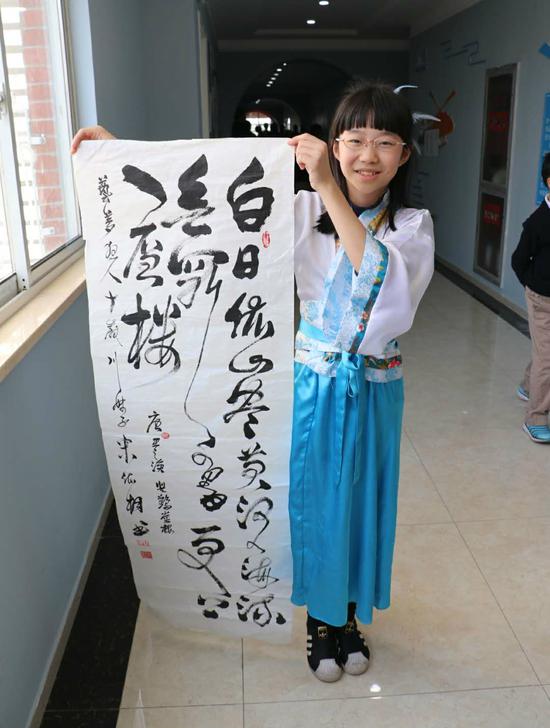 白日依山尽黄河入海流
欲穷千里目更上
一层楼
唐王之涣登鹳雀楼
人十岁小